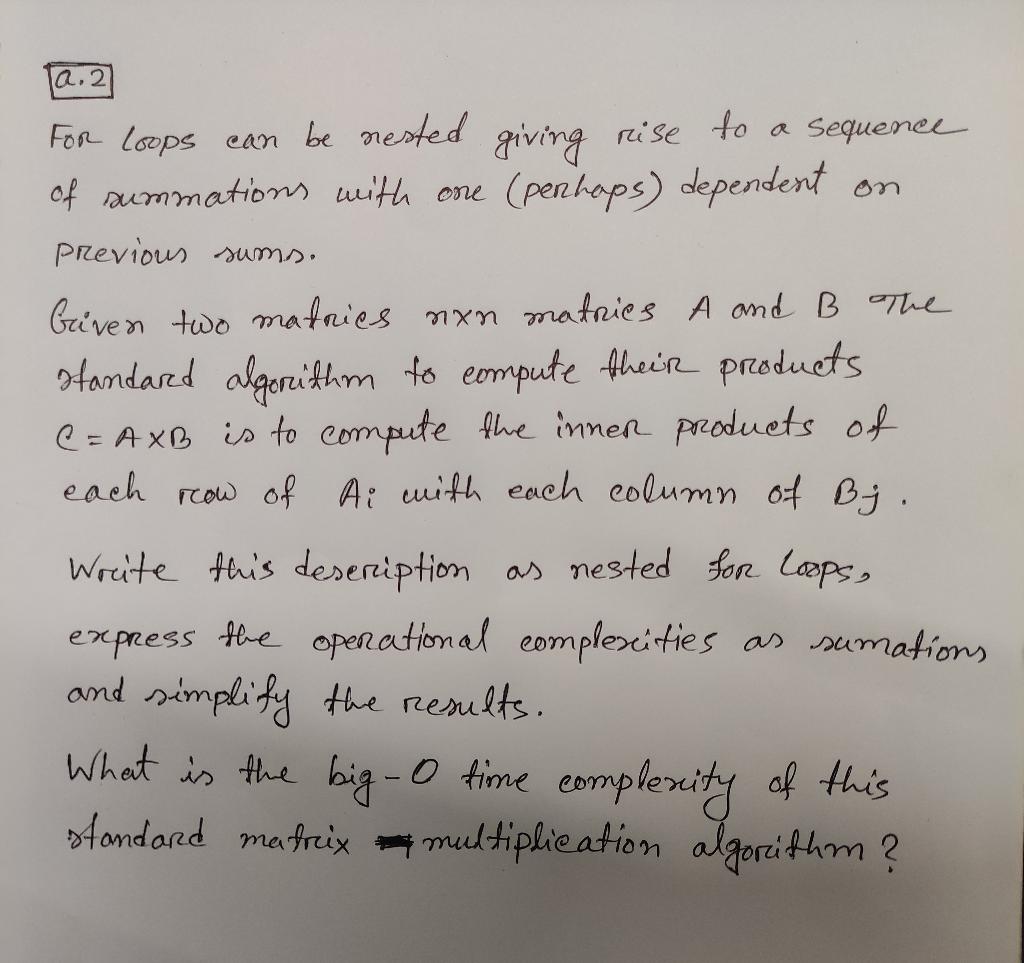 a.2
For loops can be nested giving rise to a sequence
of summations with one (perhaps) dependent on
previous sums.
Given two matries nxn matries A and B The
standard algorithm to compute their products
C = A×B is to compute the inner products of
each row of Ai with each column of Bj.
Write this description as nested for loops,
express the operational complexities as sumations
and simplify the results.
What is the big-O time complexity of this
standard matrix multiplication algorithm?